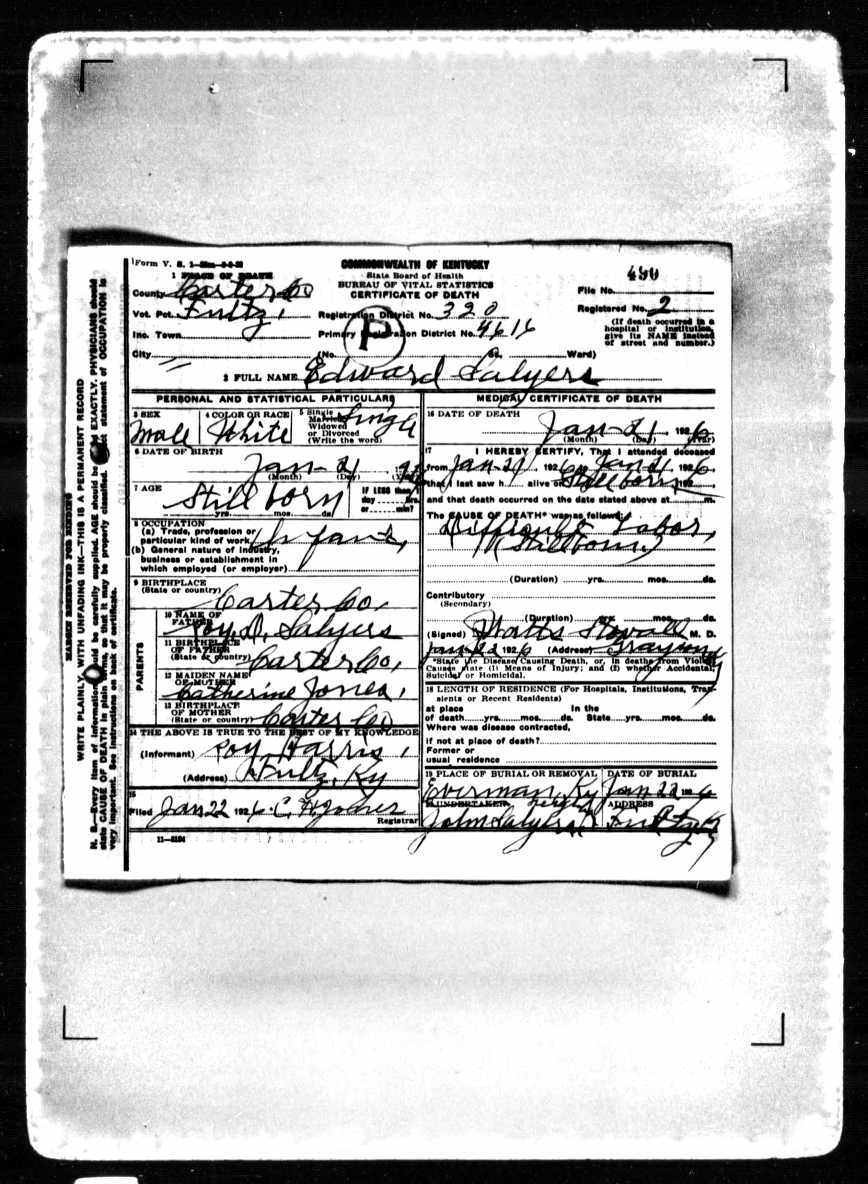 Form V. S. 1
COMMONWEALTH OF KENTUCKY
State Board of Health
BUREAU OF VITAL STATISTICS
CERTIFICATE OF DEATH
490
File No.
Registered No. 2
(If death occurred in a hospital or institution, give its NAME instead of street and number.)
1 PLACE OF DEATH
County Carter Co
Vot. Pct. Fultz,
Inc. Town
City
Registration District No. 320
Primary Registration District No. 4616
P
(No. St. Ward)
2 FULL NAME Edward Salyers
PERSONAL AND STATISTICAL PARTICULARS
3 SEX Male
4 COLOR OR RACE White
5 Single Married Widowed or Divorced (Write the word) Single
6 DATE OF BIRTH
Jan - 21
(Month) (Day) (Year)
7 AGE Still born
yrs. mos. ds.
IF LESS than 1
day hrs.
or min?
8 OCCUPATION
(a) Trade, profession or
particular kind of work Infant,
(b) General nature of industry,
business or establishment in
which employed (or employer)
9 BIRTHPLACE
(State or country) Carter Co,
PARENTS
10 NAME OF FATHER Roy. D. Salyers
11 BIRTHPLACE OF FATHER (State or country) Carter Co,
12 MAIDEN NAME OF MOTHER Catherine Jones,
13 BIRTHPLACE OF MOTHER (State or country) Carter Co
14 THE ABOVE IS TRUE TO THE BEST OF MY KNOWLEDGE
(Informant) Roy Harris,
(Address) Fultz, Ky
15
Filed Jan 22 1926
Registrar
11—2184
MEDICAL CERTIFICATE OF DEATH
16 DATE OF DEATH
Jan - 21 1926
(Month) (Day) (Year)
17 I HEREBY CERTIFY, That I attended deceased
from Jan - 21, 1926, to Jan 21 1926
that I last saw h alive on Stillborn
and that death occurred on the date stated above at m.
The CAUSE OF DEATH* was as follows:
Difficult Labor,
(Stillborn)
(Duration) yrs. mos. ds.
Contributory
(Secondary)
(Duration) yrs. mos. ds.
(Signed) Watts Stovall M. D.
Jan 22 1926 (Address) Grayson Ky
*State the Disease Causing Death, or, in deaths from Violent
Causes state (1) Means of Injury; and (2) whether Accidental,
Suicidal or Homicidal.
18 LENGTH OF RESIDENCE (For Hospitals, Institutions, Transients or Recent Residents)
at place In the
of death yrs. mos. ds. State yrs. mos. ds.
Where was disease contracted,
if not at place of death?
Former or
usual residence
19 PLACE OF BURIAL OR REMOVAL Everman, Ky
DATE OF BURIAL Jan 22 1926
UNDERTAKER John Salyers
ADDRESS Fultz Ky
MARGIN RESERVED FOR BINDING
WRITE PLAINLY, WITH UNFADING INK—THIS IS A PERMANENT RECORD
N. B.—Every item of information should be carefully supplied. AGE should be stated EXACTLY. PHYSICIANS should
state CAUSE OF DEATH in plain terms, so that it may be properly classified. Exact statement of OCCUPATION is
very important. See instructions on back of certificate.